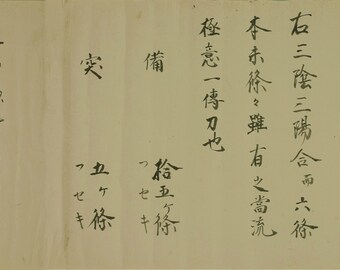 右三陰三陽合而六條
本末條々雖有之當流
極意一傳刀也
備 拾五ヶ條
つセキ
突 五ヶ條
つセキ